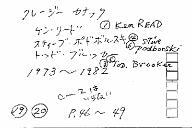 クレージー カナック
ケン・リード ① Ken READ
スティーブ ポドボルスキ ② Steve Podborski
トッド・ブルッカー ③ Tod. Brooker
1973～1982
⑲ ⑳ P.46～49